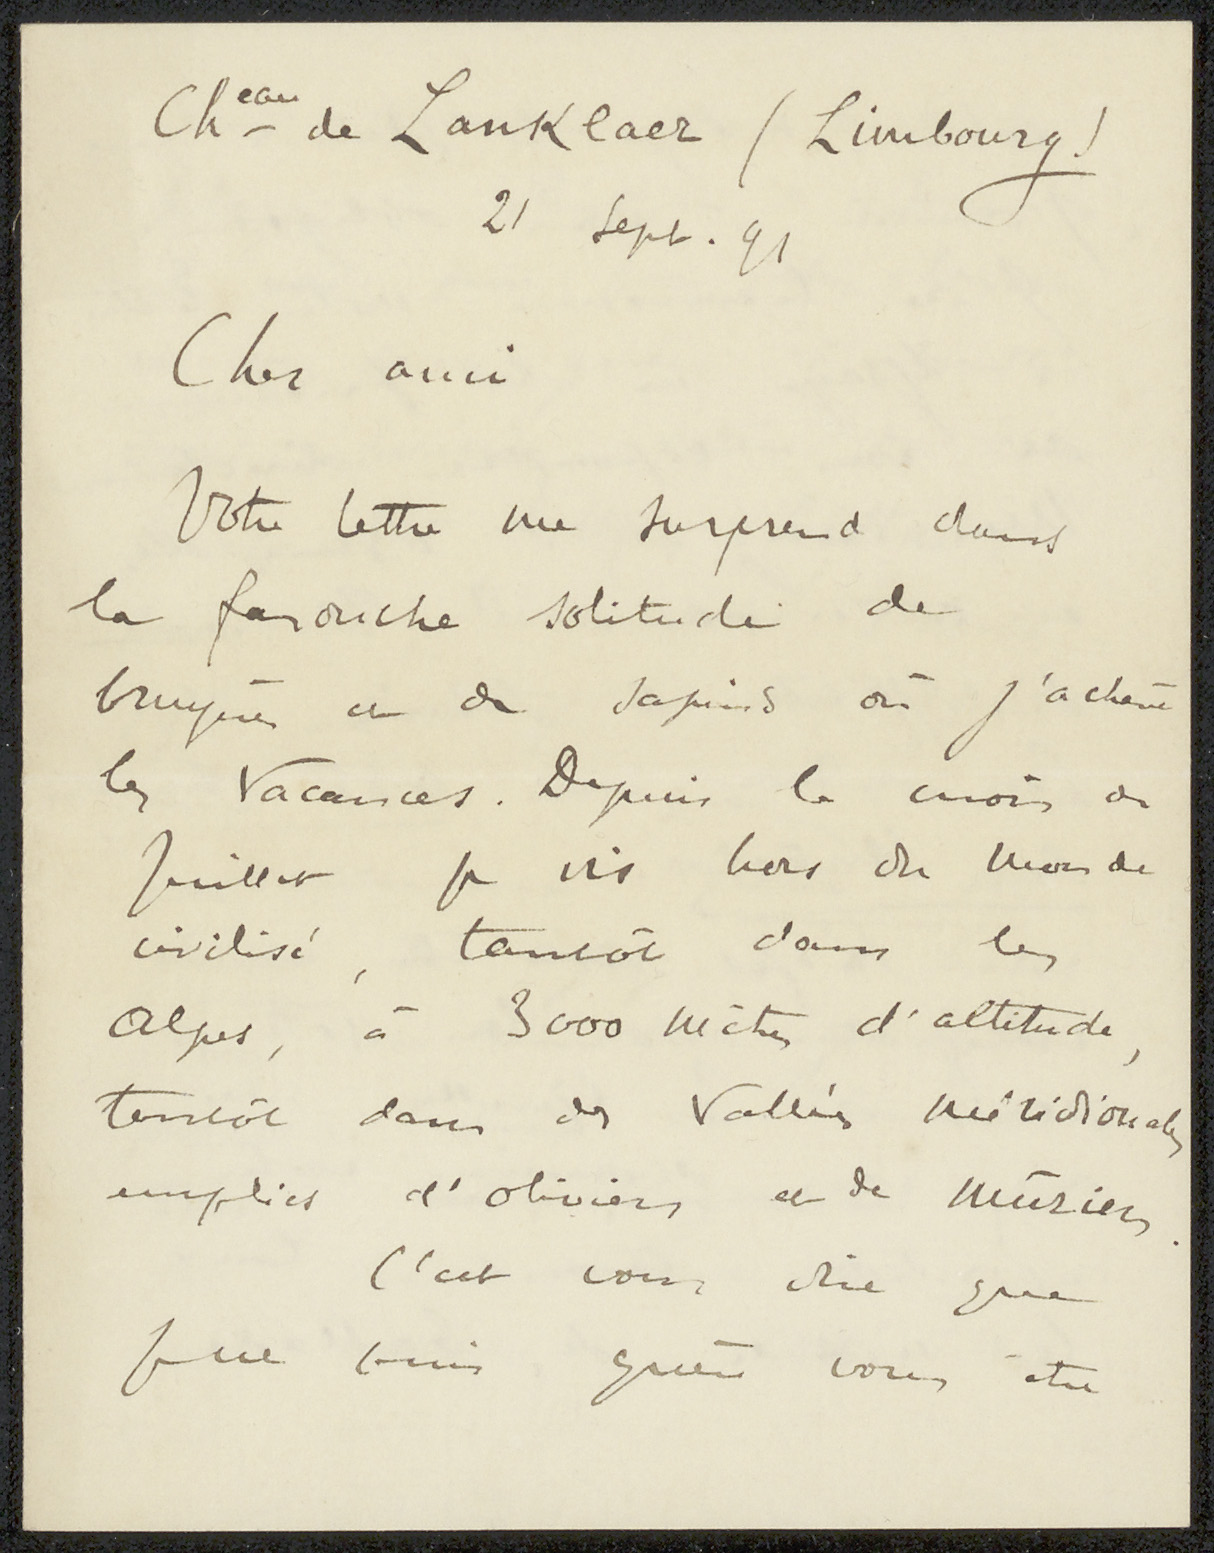 Ch^eau de Lanklaer (Limbourg)
21 Sept. 91
Cher ami
Votre lettre me surprend dans
la farouche solitude de
bruyères et de sapins où j'achève
les vacances. Depuis le mois de
Juillet je vis hors du monde
civilisé, tantôt dans les
Alpes, à 3000 mètres d'altitude,
tantôt dans des vallées méridionales
emplies d'oliviers et de mûriers.
C'est vous dire que
je ne puis guère vous être